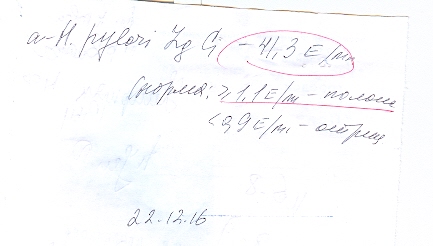 a-H. pylori Ig G - 41,3 Е/мл
(норма: ≥ 1,1 Е/мл - полож
< 0,9 Е/мл - отриц
22.12.16